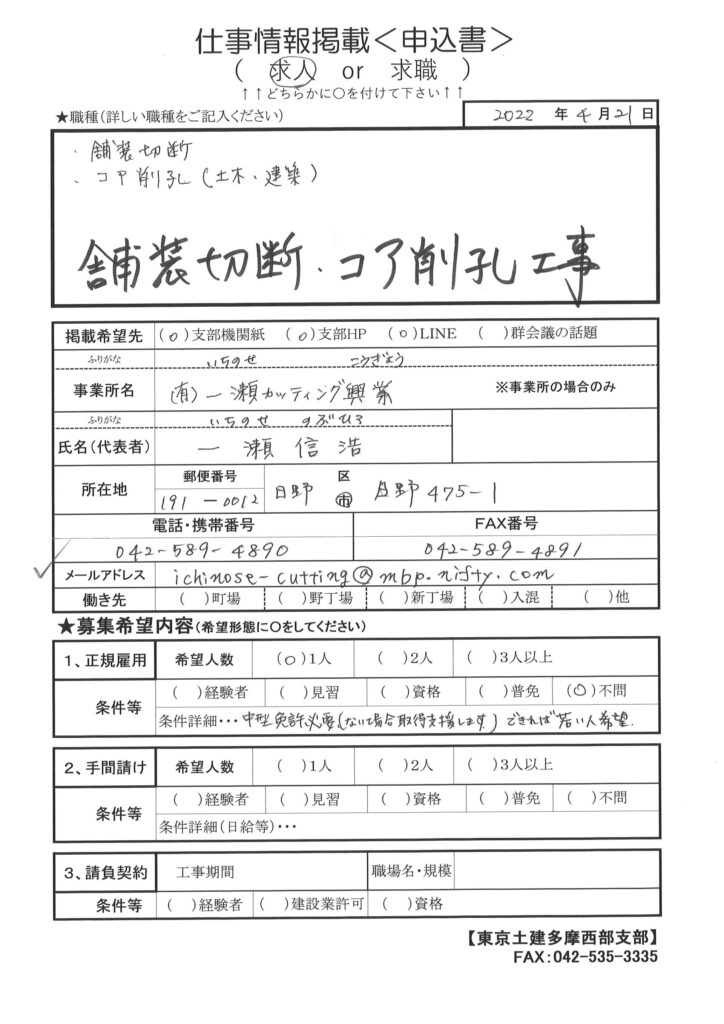 仕事情報掲載＜申込書＞
（ 求人 or 求職 ）
↑↑どちらかに○を付けて下さい↑↑
★職種（詳しい職種をご記入ください）
2022 年 4 月 21 日
・舗装切断
・コア削孔（土木・建築）
舗装切断・コア削孔工事
掲載希望先 （○）支部機関紙 （○）支部HP （○）LINE （ ）群会議の話題
ふりがな いちのせ こうぎょう
事業所名 (有)一瀬カッティング興業 ※事業所の場合のみ
ふりがな いちのせ のぶひろ
氏名（代表者） 一瀬 信浩
所在地 郵便番号 191-0012 日野 区 市 日野475-1
電話・携帯番号 FAX番号
042-589-4890 042-589-4891
メールアドレス ichinose-cutting@mbp.nifty.com
働き先 （ ）町場 （ ）野丁場 （ ）新丁場 （ ）入混 （ ）他
★募集希望内容（希望形態に○をしてください）
1、正規雇用 希望人数 （○）1人 （ ）2人 （ ）3人以上
条件等 （ ）経験者 （ ）見習 （ ）資格 （ ）普免 （○）不問
条件詳細・・・中型免許必要（ない場合取得支援します）できれば若い人希望.
2、手間請け 希望人数 （ ）1人 （ ）2人 （ ）3人以上
条件等 （ ）経験者 （ ）見習 （ ）資格 （ ）普免 （ ）不問
条件詳細（日給等）・・・
3、請負契約 工事期間 職場名・規模
条件等 （ ）経験者 （ ）建設業許可 （ ）資格
【東京土建多摩西部支部】
FAX：042-535-3335